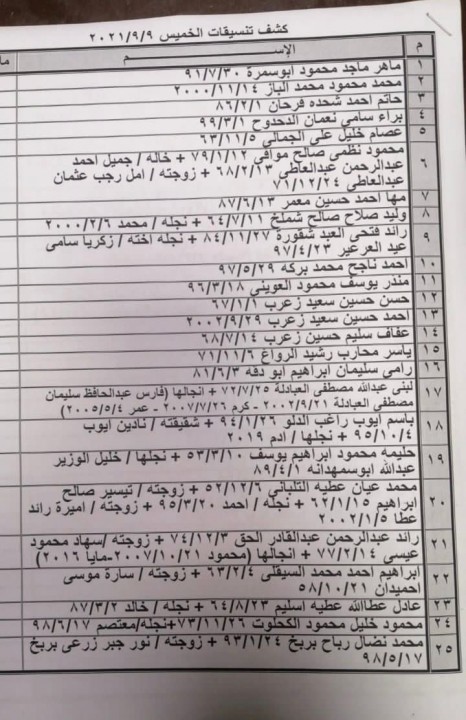 كشف تنسيقات الخميس ٢٠٢١/٩/٩
م الإســـــــم
١ ماهر ماجد محمود ابوسمرة ٩١/٧/٣٠
٢ محمد محمود محمد الباز ٢٠٠٠/١١/١٤
٣ حاتم احمد شحده فرحان ٨٦/٢/١
٤ براء سامي نعمان الدحدوح ٩٩/٣/١
٥ عصام خليل علي الجمالي ٦٣/١١/٥
٦ محمود نظمي صالح موافي ٧٩/١/١٢ + خاله / جميل احمد
عبدالرحمن عبدالعاطي ٦٨/٢/١٣ + زوجته / امل رجب عثمان
عبدالعاطي ٧١/١٢/٢٤
٧ مها احمد حسين معمر ٨٧/٦/١٣
٨ وليد صلاح صالح شملخ ٦٤/٧/١١ + نجله / محمد ٢٠٠٠/٢/٦
٩ رائد فتحي العبد شقورة ٨٤/١١/٢٧ + نجله اخته / زكريا سامي
عيد العرعير ٩٧/٤/٢٣
١٠ احمد ناجح محمد بركه ٩٧/٥/٢٩
١١ منذر يوسف محمود العويني ٩٦/٣/١٨
١٢ حسن حسين سعيد زعرب ٦٧/١/١
١٣ احمد حسين سعيد زعرب ٢٠٠٢/٩/٢٩
١٤ عفاف سليم حسين زعرب ٦٨/٧/١٤
١٥ ياسر محارب رشيد الرواغ ٧١/١١/٦
١٦ رامي سليمان ابراهيم ابو دقه ٨١/٦/٣
١٧ لبنى عبدالله مصطفى العبادلة ٧٢/٧/٢٥ + انجالها (فارس عبدالحافظ سليمان
مصطفى العبادلة ٢٠٠٢/٩/٢١ - كرم ٢٠٠٧/٧/٢٦ - عمر ٢٠٠٥/٥/٤)
١٨ باسم ايوب راغب الدلو ٩٤/١/٢٦ + شقيقته / نادين ايوب
٩٥/١٠/٤ + نجلها / ادم ٢٠١٩
١٩ حليمه محمود ابراهيم يوسف ٥٣/٣/١٠ + نجلها / خليل الوزير
عبدالله ابوسمهدانه ٨٩/٤/١
٢٠ محمد عيان عطيه التلباني ٥٢/١٢/٦ + زوجته / تيسير صالح
ابراهيم ٦٢/١/١٥ + نجله / احمد ٩٥/٣/٢٠ + زوجته / اميرة رائد
عطا ٢٠٠٢/١/٥
٢١ رائد عبدالرحمن عبدالقادر الحق ٧٤/١٢/٣ + زوجته /سهاد محمود
عيسى ٧٧/٢/١٤ + انجالها (محمود ٢٠٠٧/١٠/٢١-مايا ٢٠١٦)
٢٢ ابراهيم احمد محمد السيقلي ٦٣/٢/٤ + زوجته / سارة موسى
احميدان ٥٨/١٠/٢١
٢٣ عادل عطاالله عطيه اسليم ٦٤/٨/٢٣ + نجله / خالد ٨٧/٣/٢
٢٤ محمود خليل محمود الكحلوت ٧٣/١١/٢٦+نجله/معتصم ٩٨/٦/١٧
٢٥ محمد نضال رباح بربخ ٩٣/١/٢٤ + زوجته / نور جبر زرعي بربخ
٩٨/٥/١٧